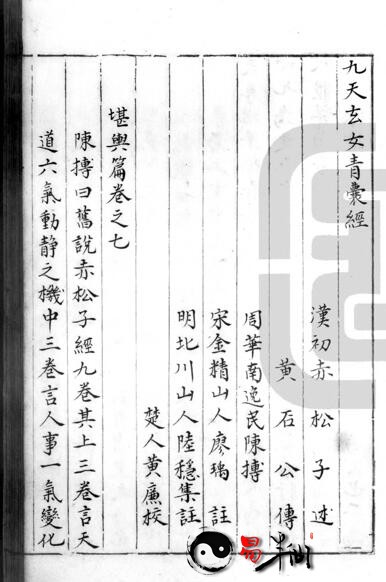 九天玄女青囊經
漢初赤松子述
黄石公傳
周華南逸民陳摶
宋金精山人廖瑀註
明北川山人陸穩集註
楚人黄廉校
堪輿篇卷之七
陳摶曰舊説赤松子經九卷其上三卷言天
道六氣動静之機中三卷言人事一氣變化